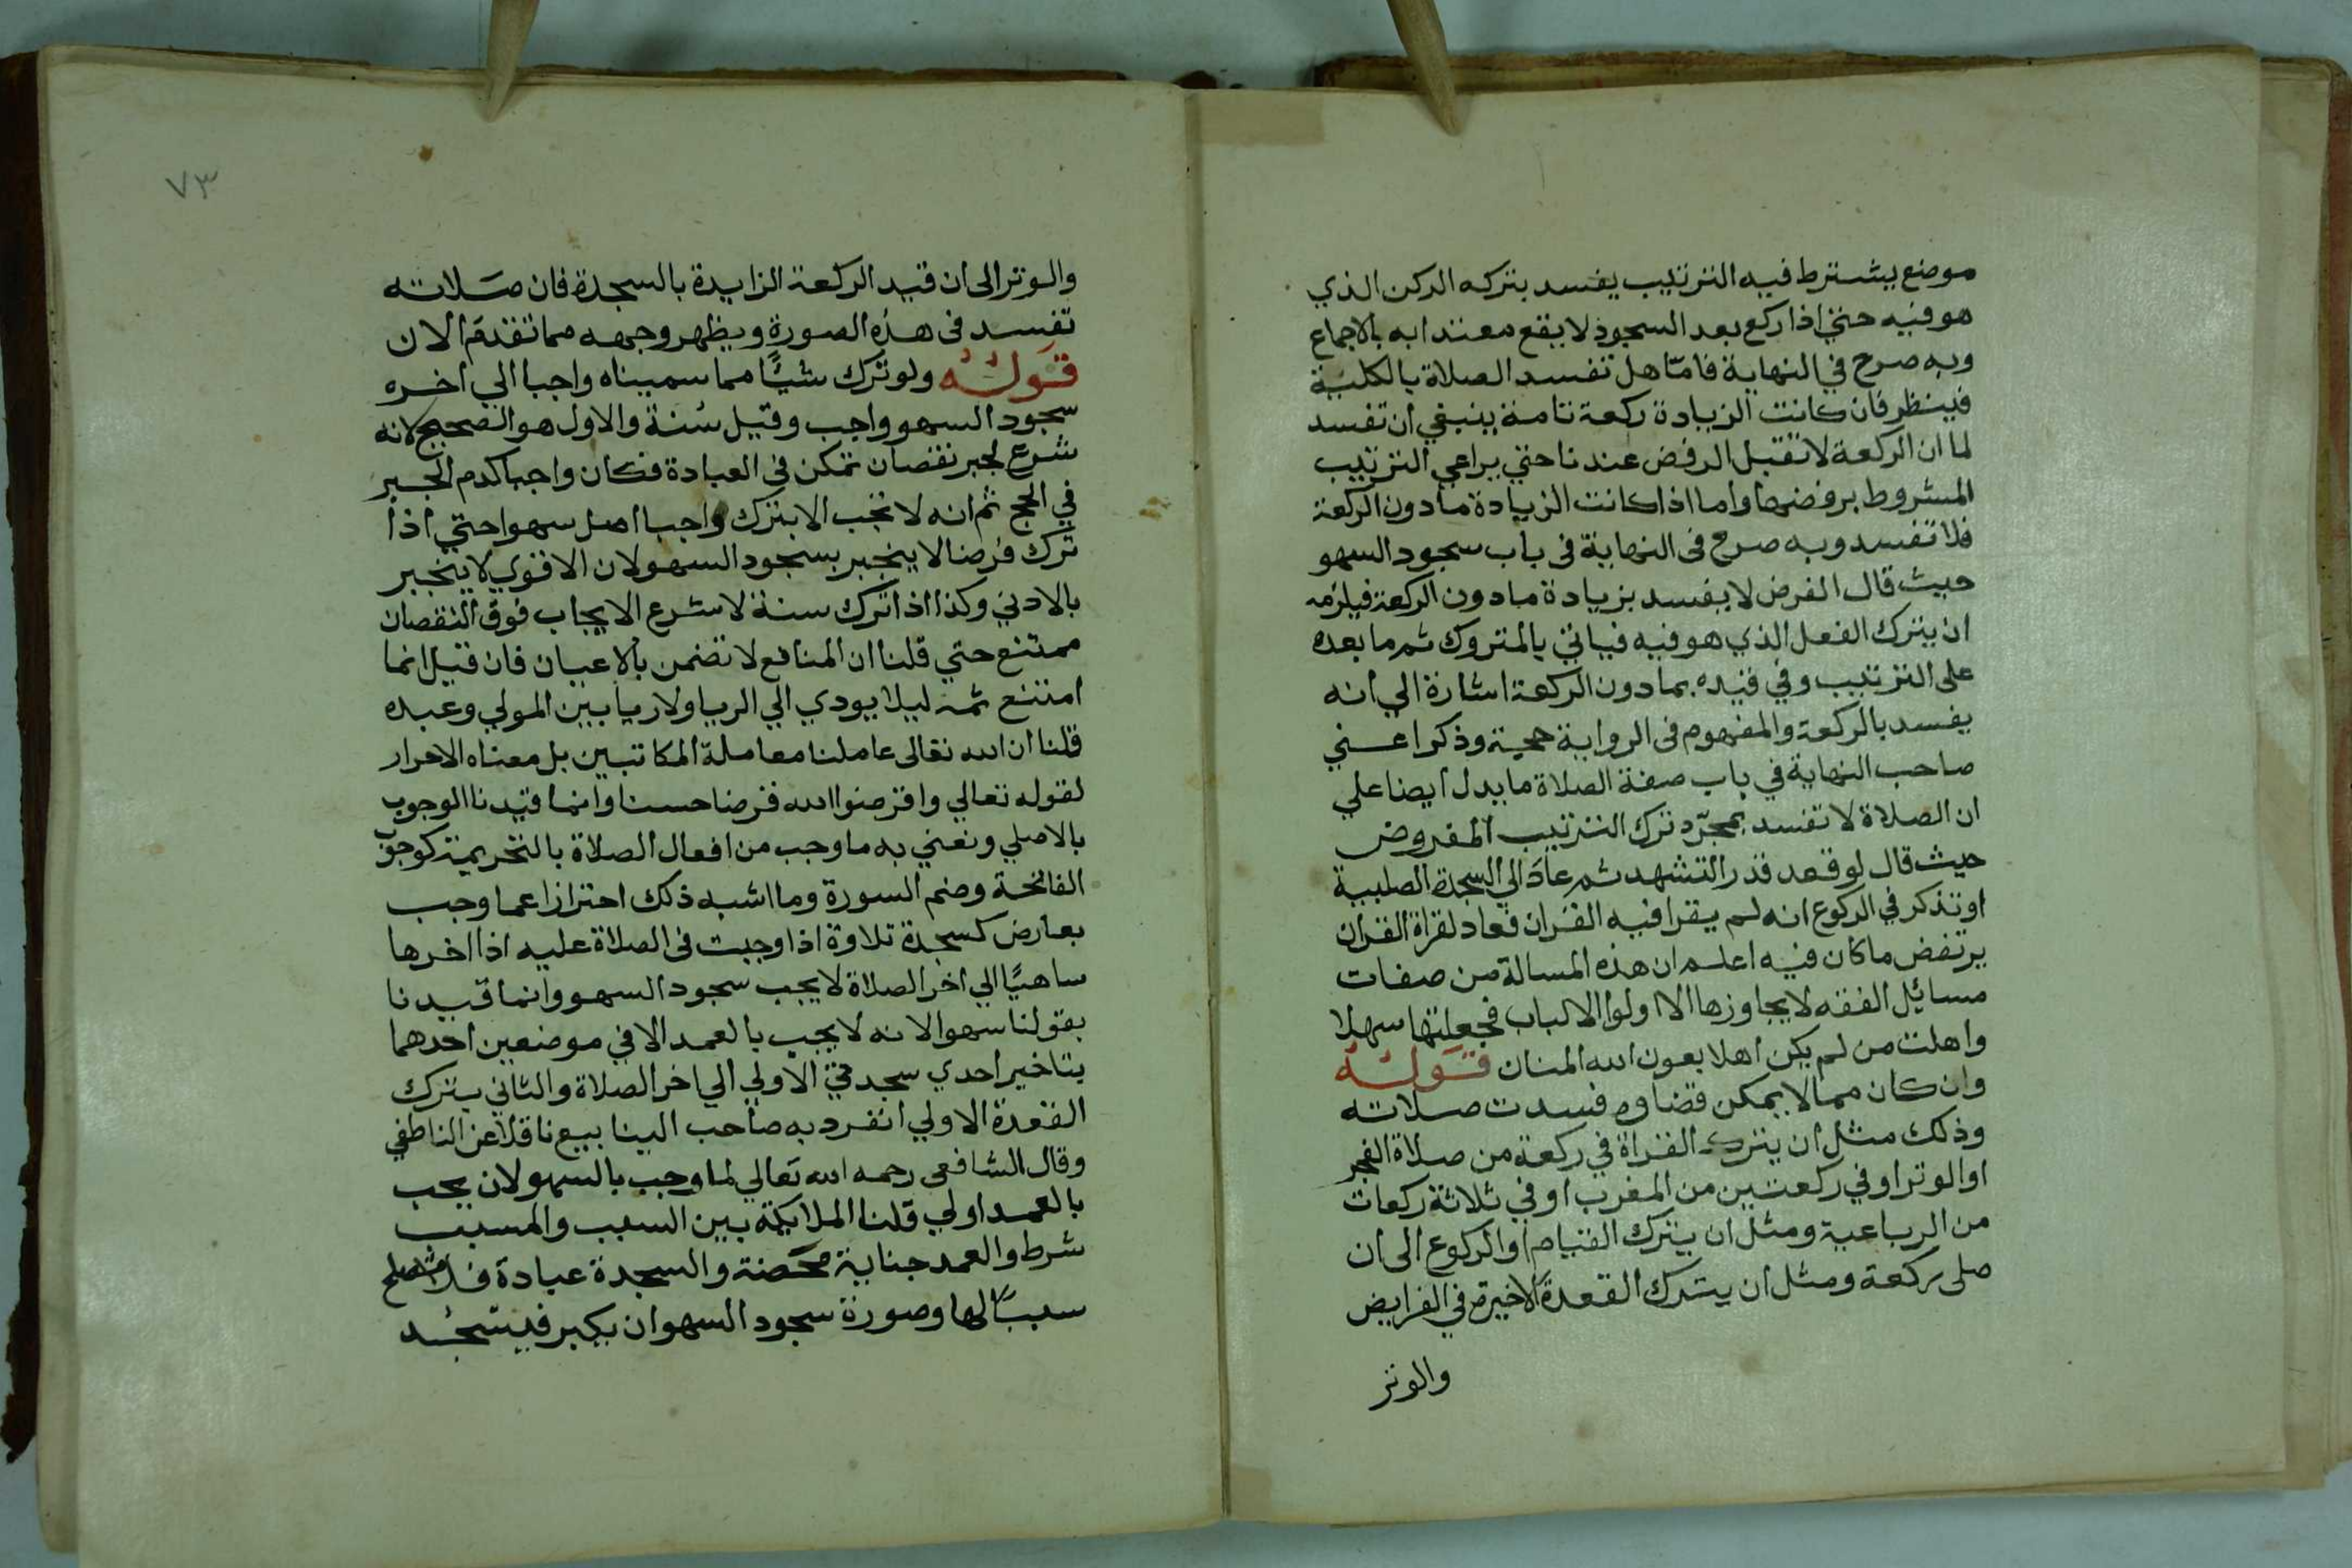 موضع يشترط فيه الترتيب يفسد بتركه الركن الذي
هو فيه حتى اذا ركع بعد السجود لا يقع معتدا به بالاجماع
وبه صرح في النهاية فامّا هل تفسد الصلاة بالكلية
فينظر فان كانت الزيادة ركعة تامة ينبغي ان تفسد
لما ان الركعة لا تقبل الرفض عندنا حتي يراعي الترتيب
المشروط برفضها واما اذا كانت الزيادة ما دون الركعة
فلا تفسد وبه صرح فى النهاية فى باب سجود السهو
حيث قال الفرض لا يفسد بزيادة ما دون الركعة فيلزمه
ان يترك الفعل الذي هو فيه فياتي بالمتروك ثم ما بعده
على الترتيب وفي قيده بما دون الركعة اشارة الي انه
يفسد بالركعة والمفهوم فى الرواية حجية وذكر اعني
صاحب النهاية في باب صفة الصلاة ما يدل ايضا علي
ان الصلاة لا تفسد بمجرّد ترك الترتيب المفروض
حيث قال لو قعد قدر التشهد ثم عاد الي السجدة الصلبية
او تذكر في الركوع انه لم يقرا فيه القران فعاد لقراة القران
يرتفض ما كان فيه اعلم ان هذه المسالة من صفات
مسائل الفقه لا يجاوزها الا اولوا الالباب فجعلتها سهلا
واهلت من لم يكن اهلا بعون الله المنان قوله
وان كان مما لا يمكن قضاوه فسدت صلاته
وذلك مثل ان يترك القراة في ركعة من صلاة الفجر
او الوتر او في ركعتين من المغرب او في ثلاثة ركعات
من الرباعية ومثل ان يترك القيام او الركوع الى ان
صلى ركعة ومثل ان يترك القعدة الاخيرة في الفرايض
والوتر
٧٣
والوتر الى ان قيد الركعة الزايدة بالسجدة فان صلاته
تفسد فى هذه الصورة ويظهر وجهه مما تقدم الان
قوله ولو ترك شيئًا مما سميناه واجبا الي اخره
سجود السهو واجب وقيل سنة والاول هو الصحيح لانه
شرع لجبر نقصان تمكن في العبادة فكان واجبا كدم الجبر
في الحج ثم انه لا تجب الا بترك واجبا اصل سهوا حتي اذا
ترك فرضا لا ينجبر بسجود السهو لان الاقوي لا ينجبر
بالادني وكذا اذا ترك سنة لا شرع الايجاب فوق النقصان
ممتنع حتي قلنا ان المنافع لا تضمن بالاعيان فان قيل انما
امتنع ثمه ليلا يودي الي الربا ولا ربا بين المولي وعبده
قلنا ان الله تعالى عاملنا معاملة المكاتبين بل معناه الاحرار
لقوله تعالي واقرضوا الله قرضا حسنا وانما قيدنا الوجوب
بالاصلي ونعني به ما وجب من افعال الصلاة بالتحريمة كوجوب
الفاتحة وضم السورة وما اشبه ذلك احترازا عما وجب
بعارض كسجدة تلاوة اذا وجبت فى الصلاة عليه اذا اخرها
ساهيًا الي اخر الصلاة لا يجب سجود السهو وانما قيدنا
بقولنا سهوا لانه لا يجب بالعمد الا في موضعين احدهما
بتاخير احدي سجدتي الاولي الي اخر الصلاة والثاني بترك
القعدة الاولي انفرد به صاحب الينابيع ناقلا عن الناطفي
وقال الشافعى رحمه الله تعالي لما وجب بالسهو لان يجب
بالعمد اولي قلنا الملايمة بين السبب والمسبب
شرط والعمد جناية محضة والسجدة عبادة فلا تصلح
سببًا لها وصورة سجود السهو ان يكبر فيسجد